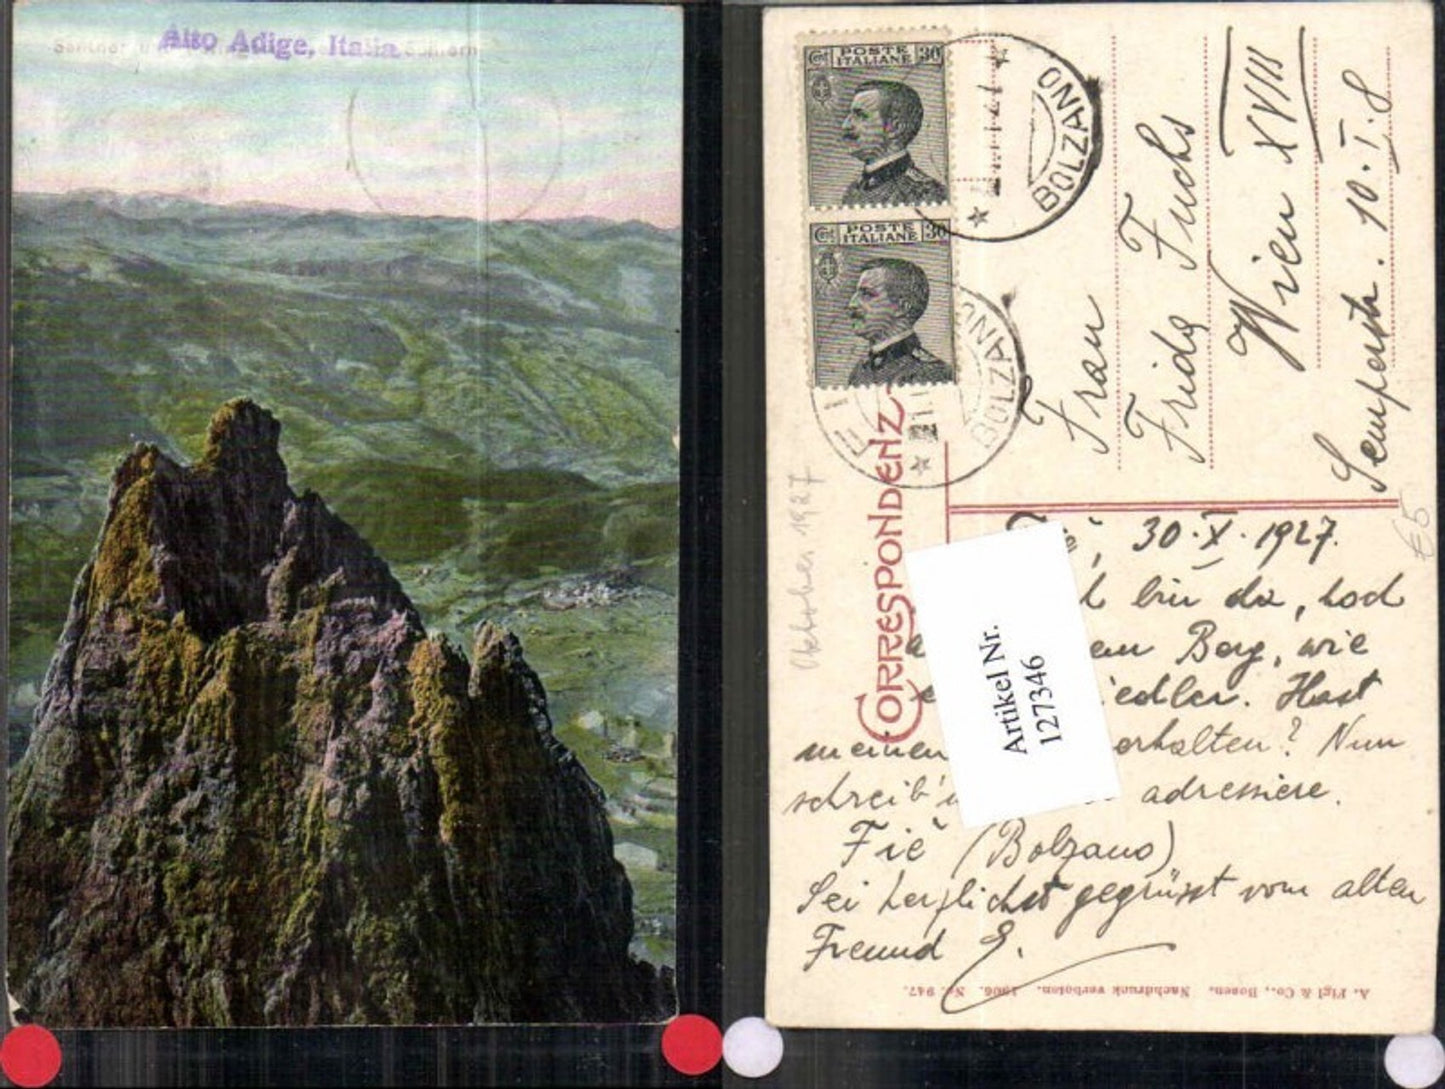 Alto Adige, Italia
Santner
Schlern
Cent POSTE ITALIANE 30
Cent POSTE ITALIANE 30
BOLZANO
BOLZANO
CORRESPONDENZ
Frau
Frida Fuchs
Wien XVIII
Semperstr. 10. I. 8
Oktober 1927
€5
30. X. 1927.
bin da, hoch
Berg, wie
iedler. Hast
meinen erhalten? Nun
schreib' adressiere.
Fiè (Bolzano)
Sei herzlichst gegrüsst vom alten
Freund E.
Artikel Nr.
127346
A. Figl & Co., Bozen. Nachdruck verboten. 1906. Nr. 947.